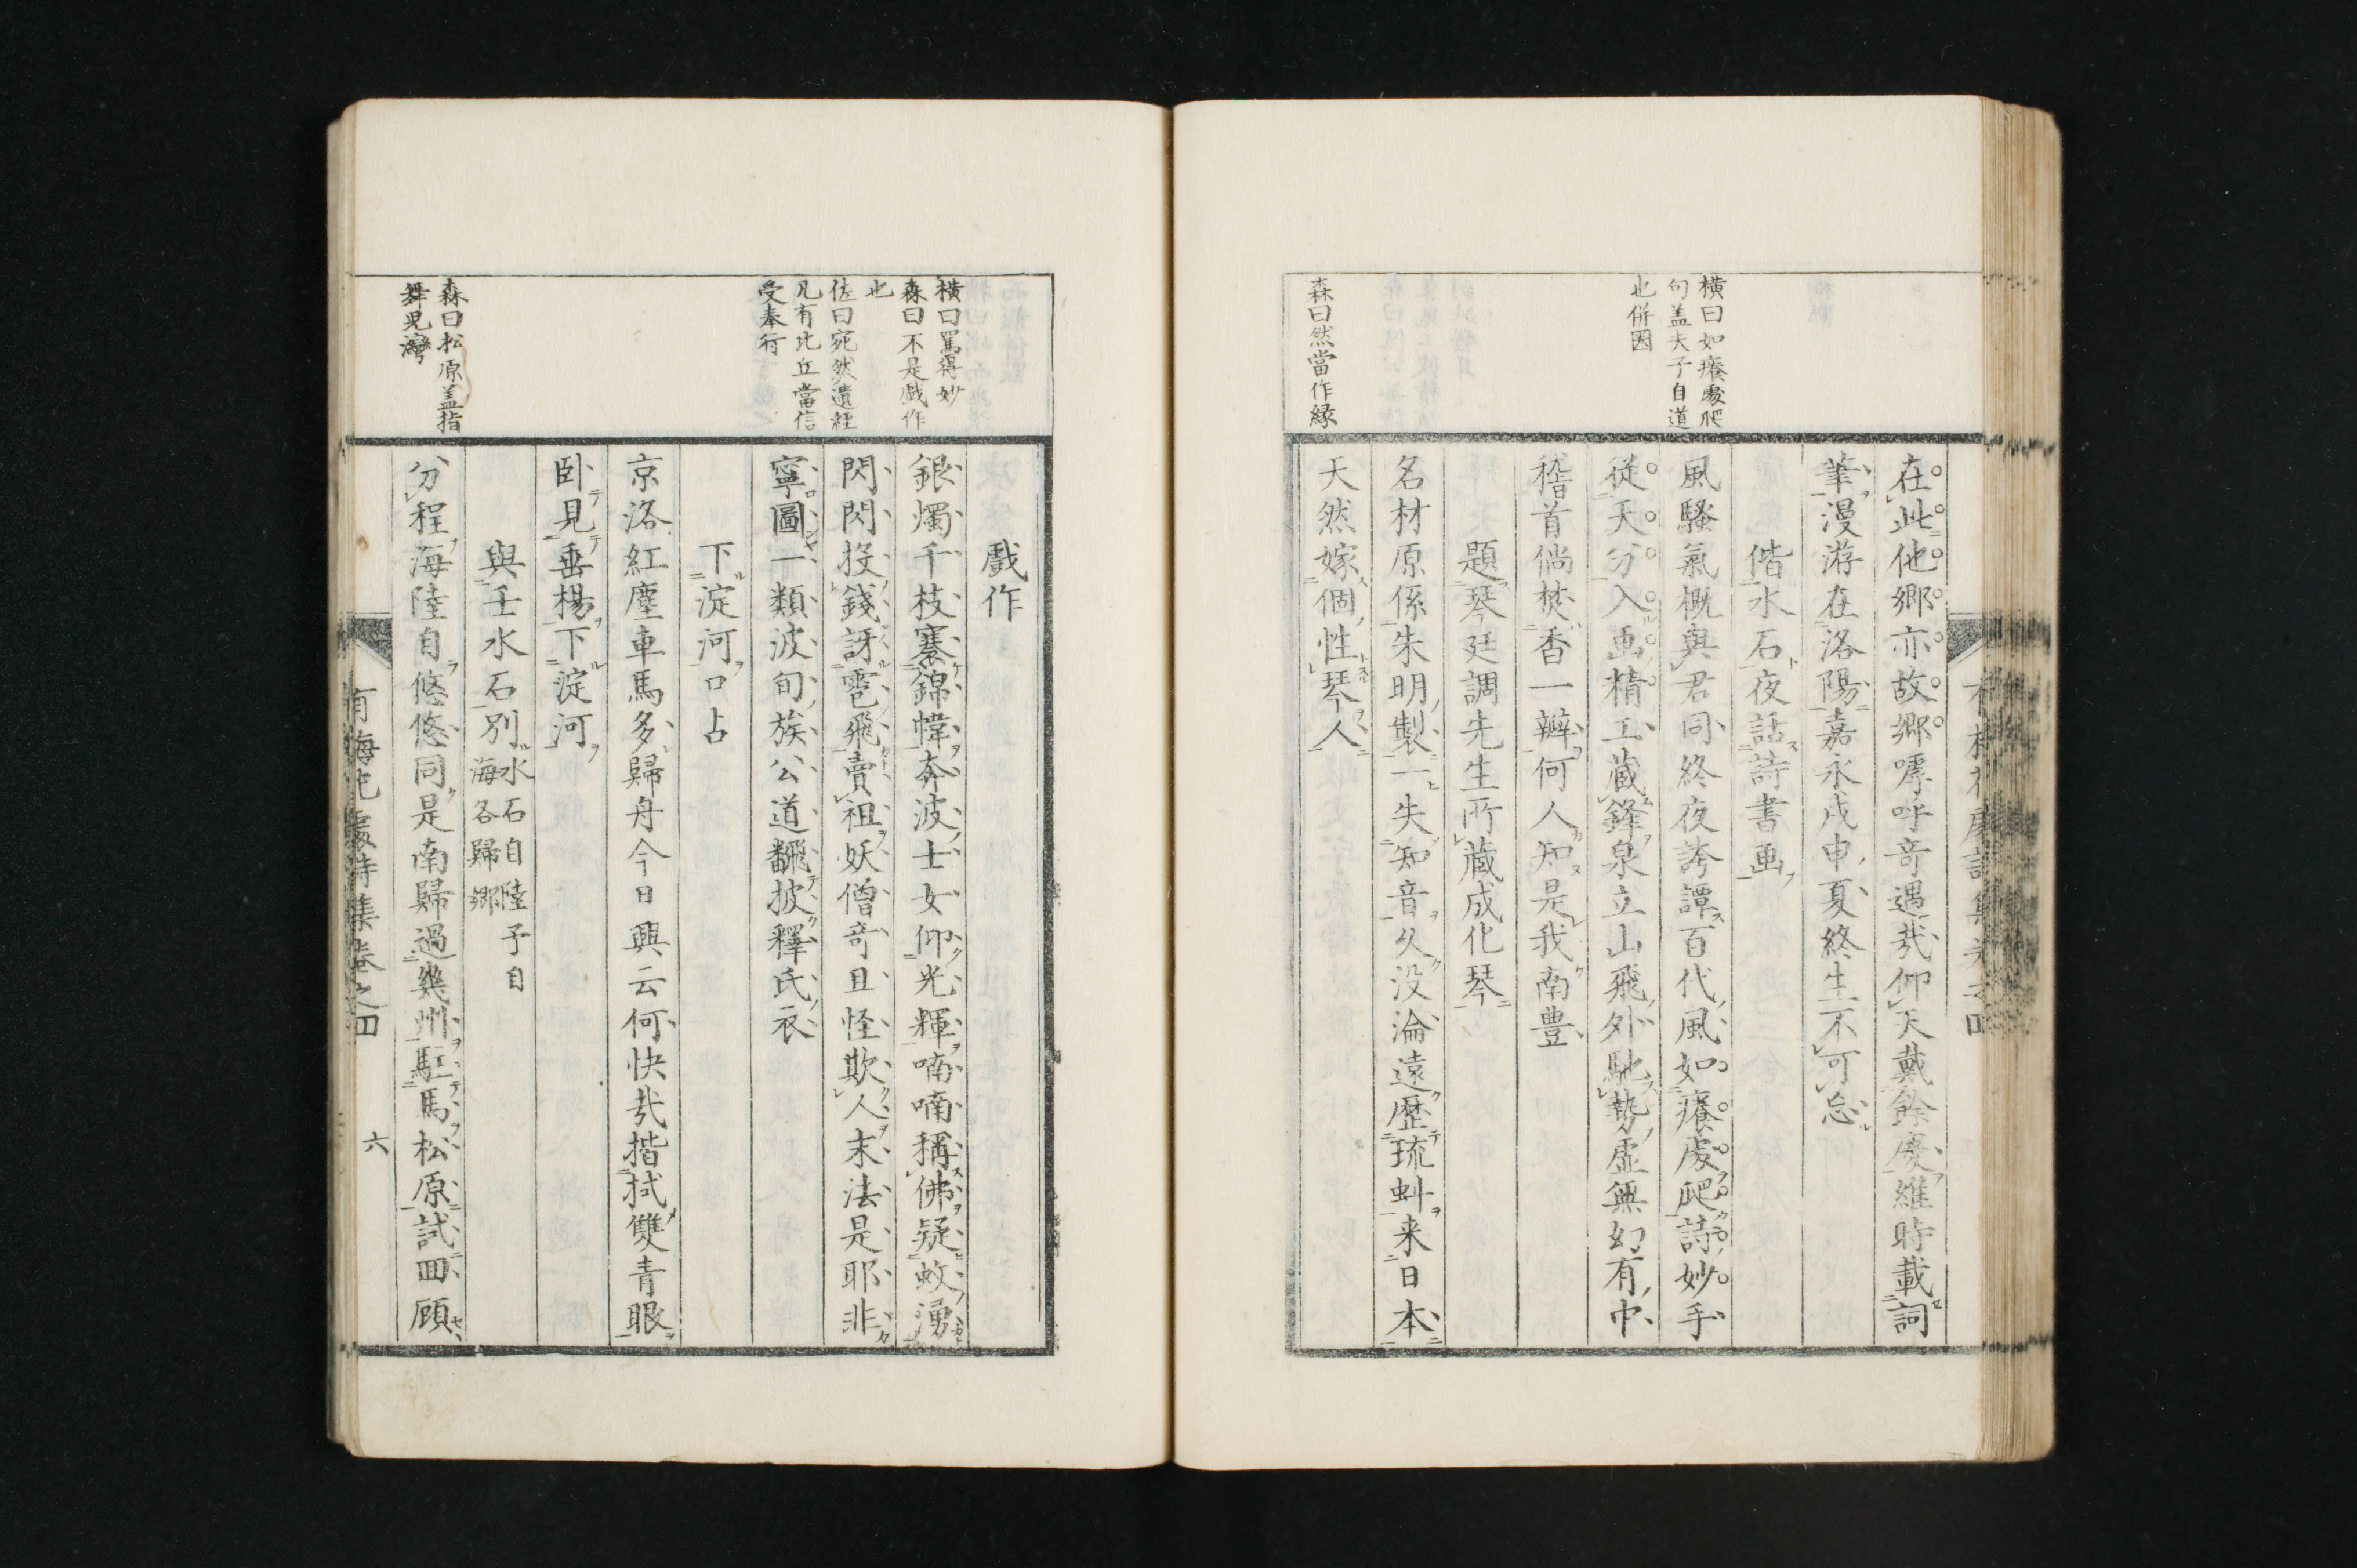 横曰如癢處爬
句盖夫子自道
也併圏
森曰然當作縁
在此他鄉亦故鄉嘑呼竒遇哉仰天戴餘慶維時載詞
筆漫游在洛陽嘉永戊申夏終生不可忘
偕水石夜話詩書画
風騷氣概與君同終夜誇譚百代風如癢處爬詩妙手
従天分入画精工蔵鋒泉立山飛外馳勢虚無幻有中
稽首倘焚香一瓣何人知是我南豊
題琴廷調先生所蔵成化琴
名材原係朱明製一失知音久没淪遠歴琉虯来日本
天然嫁個性琴人
横曰罵得妙
森曰不是戯作
也
佐曰宛然遺経
凡有比丘當信
受奉行
森曰松原盖指
舞児灣
戯作
銀燭千枝褰錦幃奔波士女仰光輝喃喃稱佛疑蚊湧
閃閃投錢訝雹飛賣祖妖僧竒且怪欺人末法是耶非
寧圖一類波旬族公道飜披釋氏衣
下淀河口占
京洛紅塵車馬多歸舟今日興云何快哉揩拭雙青眼
臥見垂楊下淀河
與壬水石別水石自陸予自
海各歸鄉
分程海陸自悠悠同是南歸過幾州駐馬松原試回顧
六